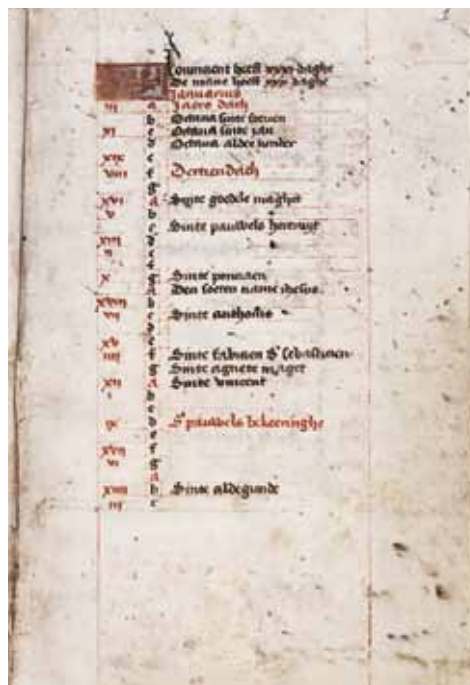 Loumaent heeft xxxi daghe
De mane heeft xxx daghe
Januarius
iii a Jaers dach
b Octava sinte steven
xi c Octava sinte jan
d Octava alder kinder
xix e
viii f Dertien dach
g
xvi a Sinte goedele maghet
v b
c Sinte pauwels
xiii d
ii e
f
x g Sinte
a Den soeten name ihesus
xviii b
vii c Sinte anthonis
d
xv e
iiii f Sinte fabiaen S sebastiaen
g Sinte agnete maget
xii a Sinte vincent
i b
c
ix d S pauwels bekeeringhe
e
xvii f
vi g
a
xiiii b Sinte aldegunde
iii c